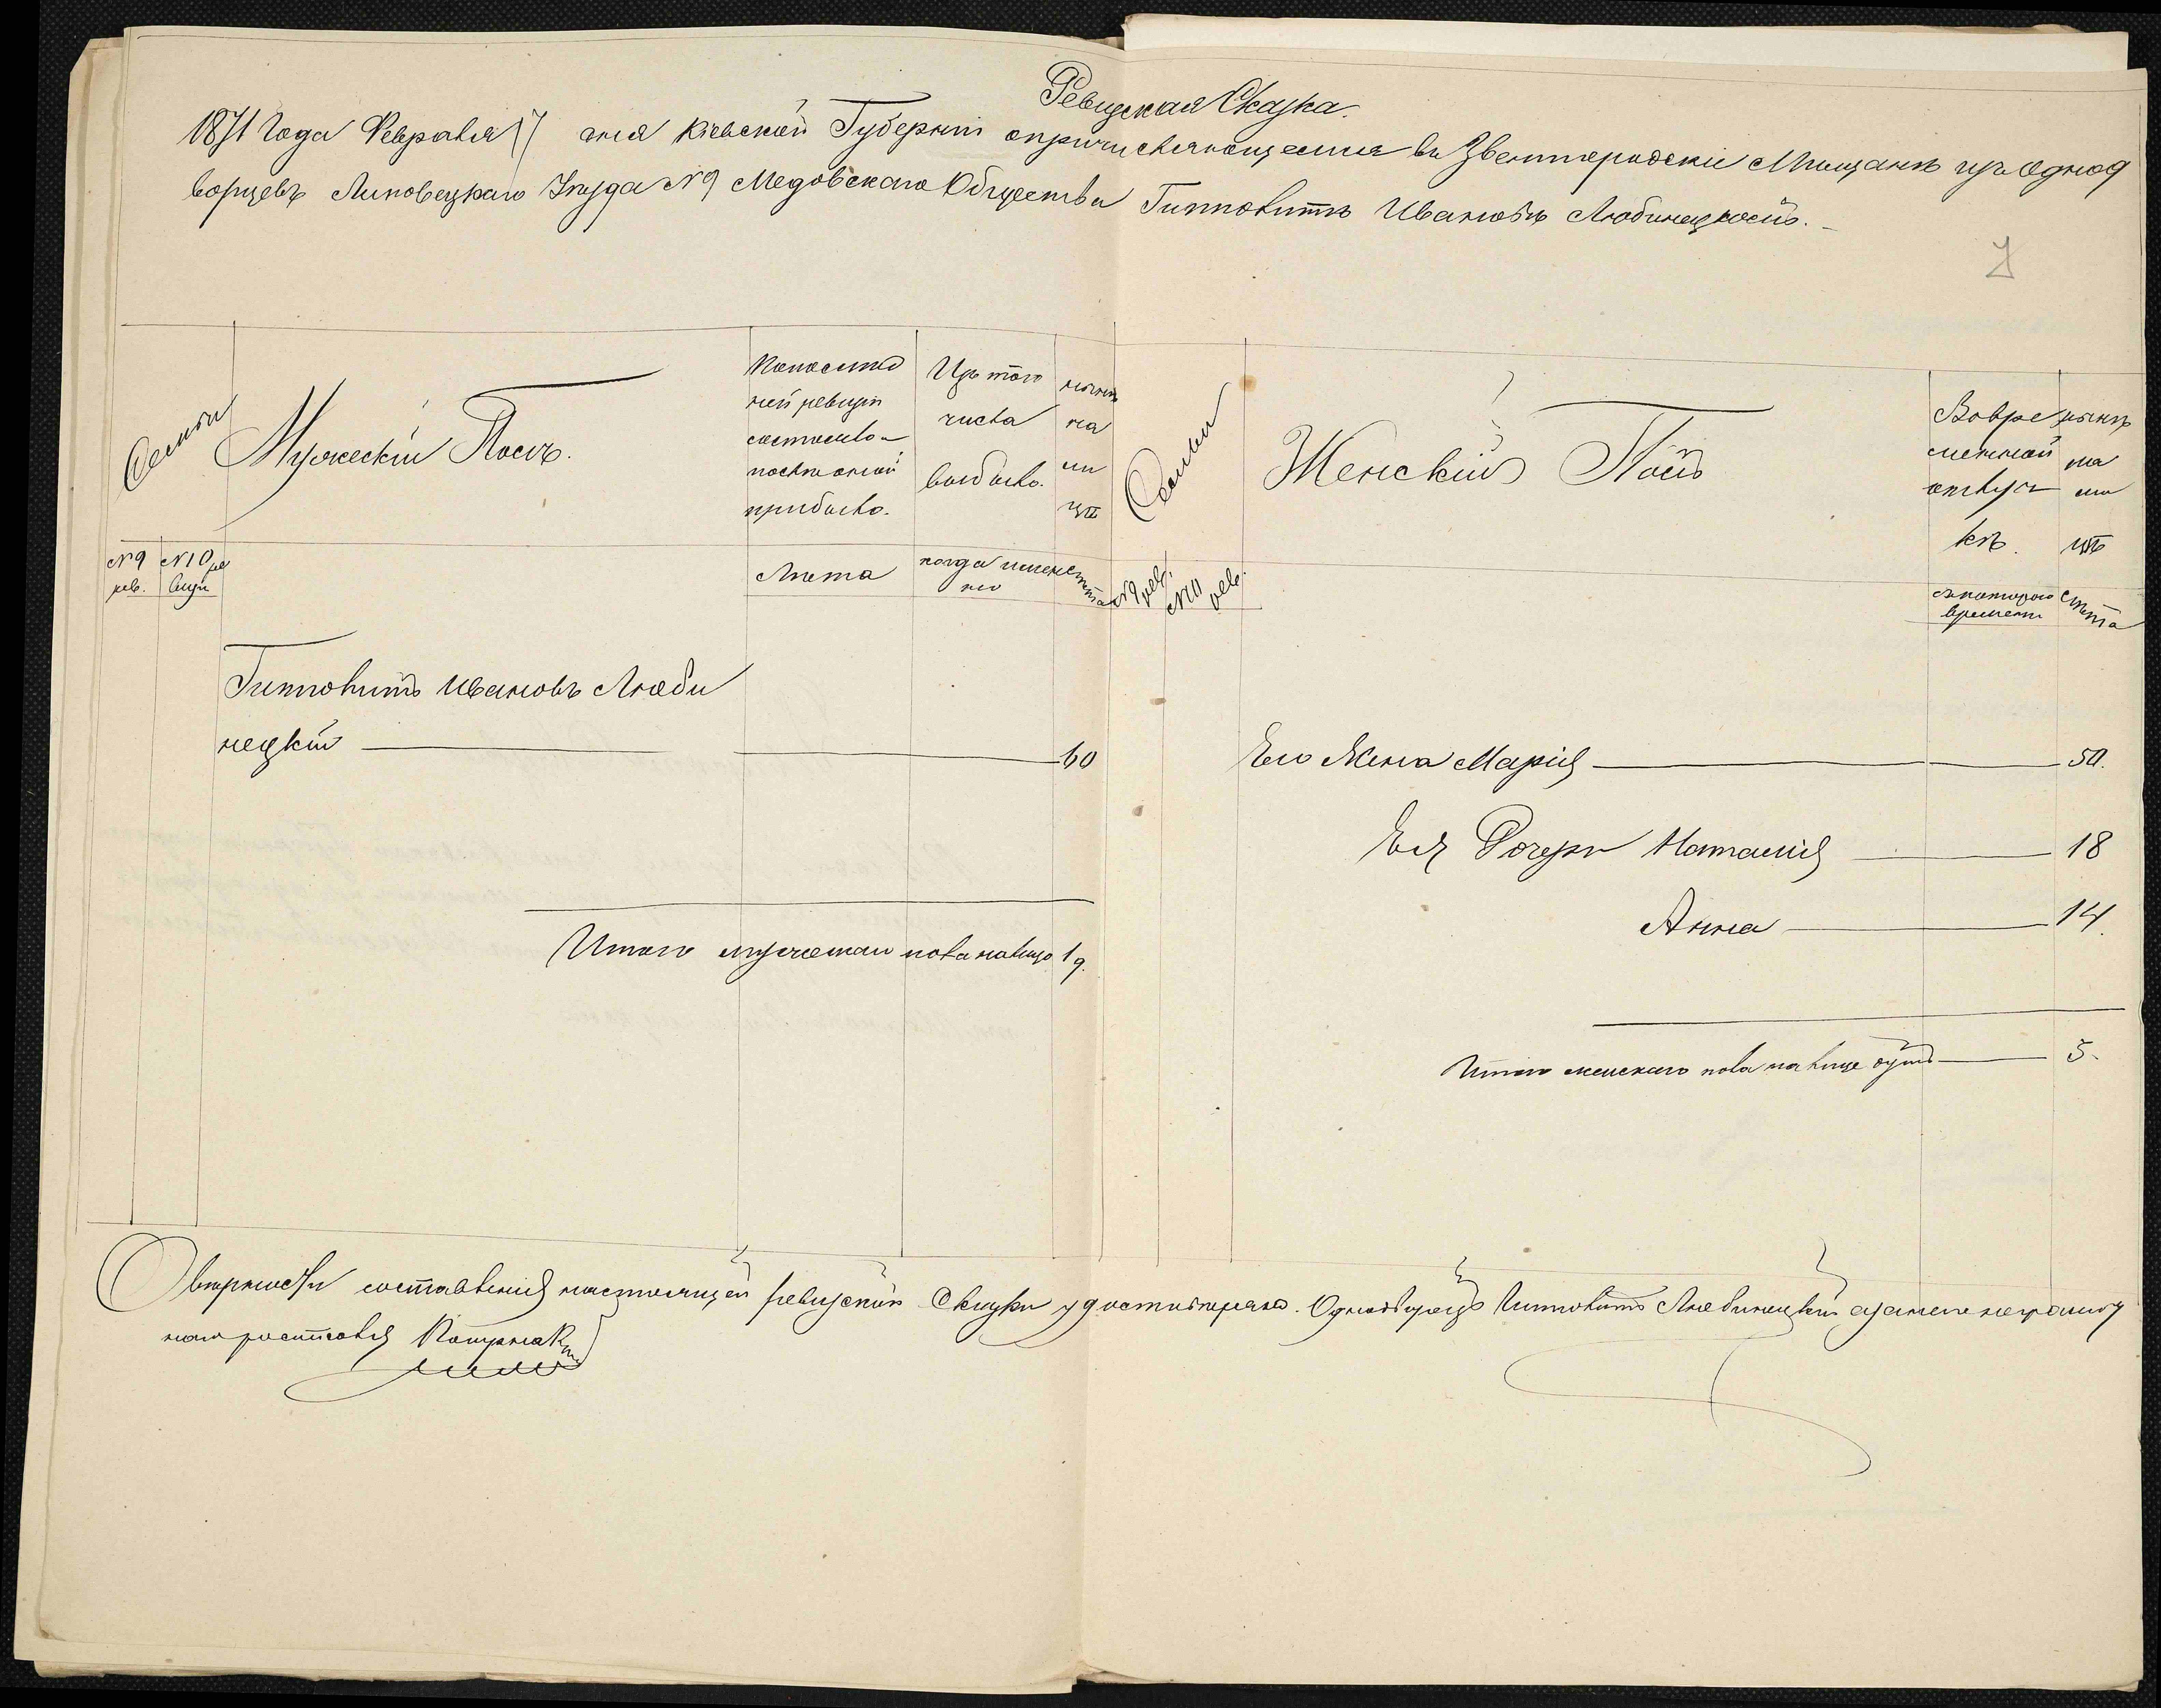 Ревизская Сказка.
1871 Года Февраля 17 дня Кіевской Губерніи опричисляющемся въ Звенигородскіе Мѣщанѣ изъ однод
ворцевъ Липовецкаго Уѣзда № 9 Медовскаго Общества Гипполитъ Ивановъ Любинецкой.
7
Семьи
Мужескій Полъ.
По послѣд
ней ревизіи
состояло и
послѣ оной
прибыло.
Изъ того
числа
выбыло.
нынѣ
на
ли
цѣ
Семьи
Женскій Полъ
Во вре
менной
отлуч
кѣ.
нынѣ
на
ли
цѣ
№ 9 рев.
№ 10 ре визи
Лѣта
когда именно
Лѣта
№ 9 рев.
№ 10 рев.
съ котораго времени
Лѣта
Гипполитъ Ивановъ Люби
нецкій 60
Его Жена Марія 50.
Ея Дочери Наталія 18
Анна 14.
Итого мужескаго пола налицо 1 д.
Итого женскаго пола на лице душъ 3.
О вѣрности составленія настоящей ревизской Сказки удостовѣряю. Однодворецъ Гипполитъ Любинецкій а занего неграмот
наго росписался